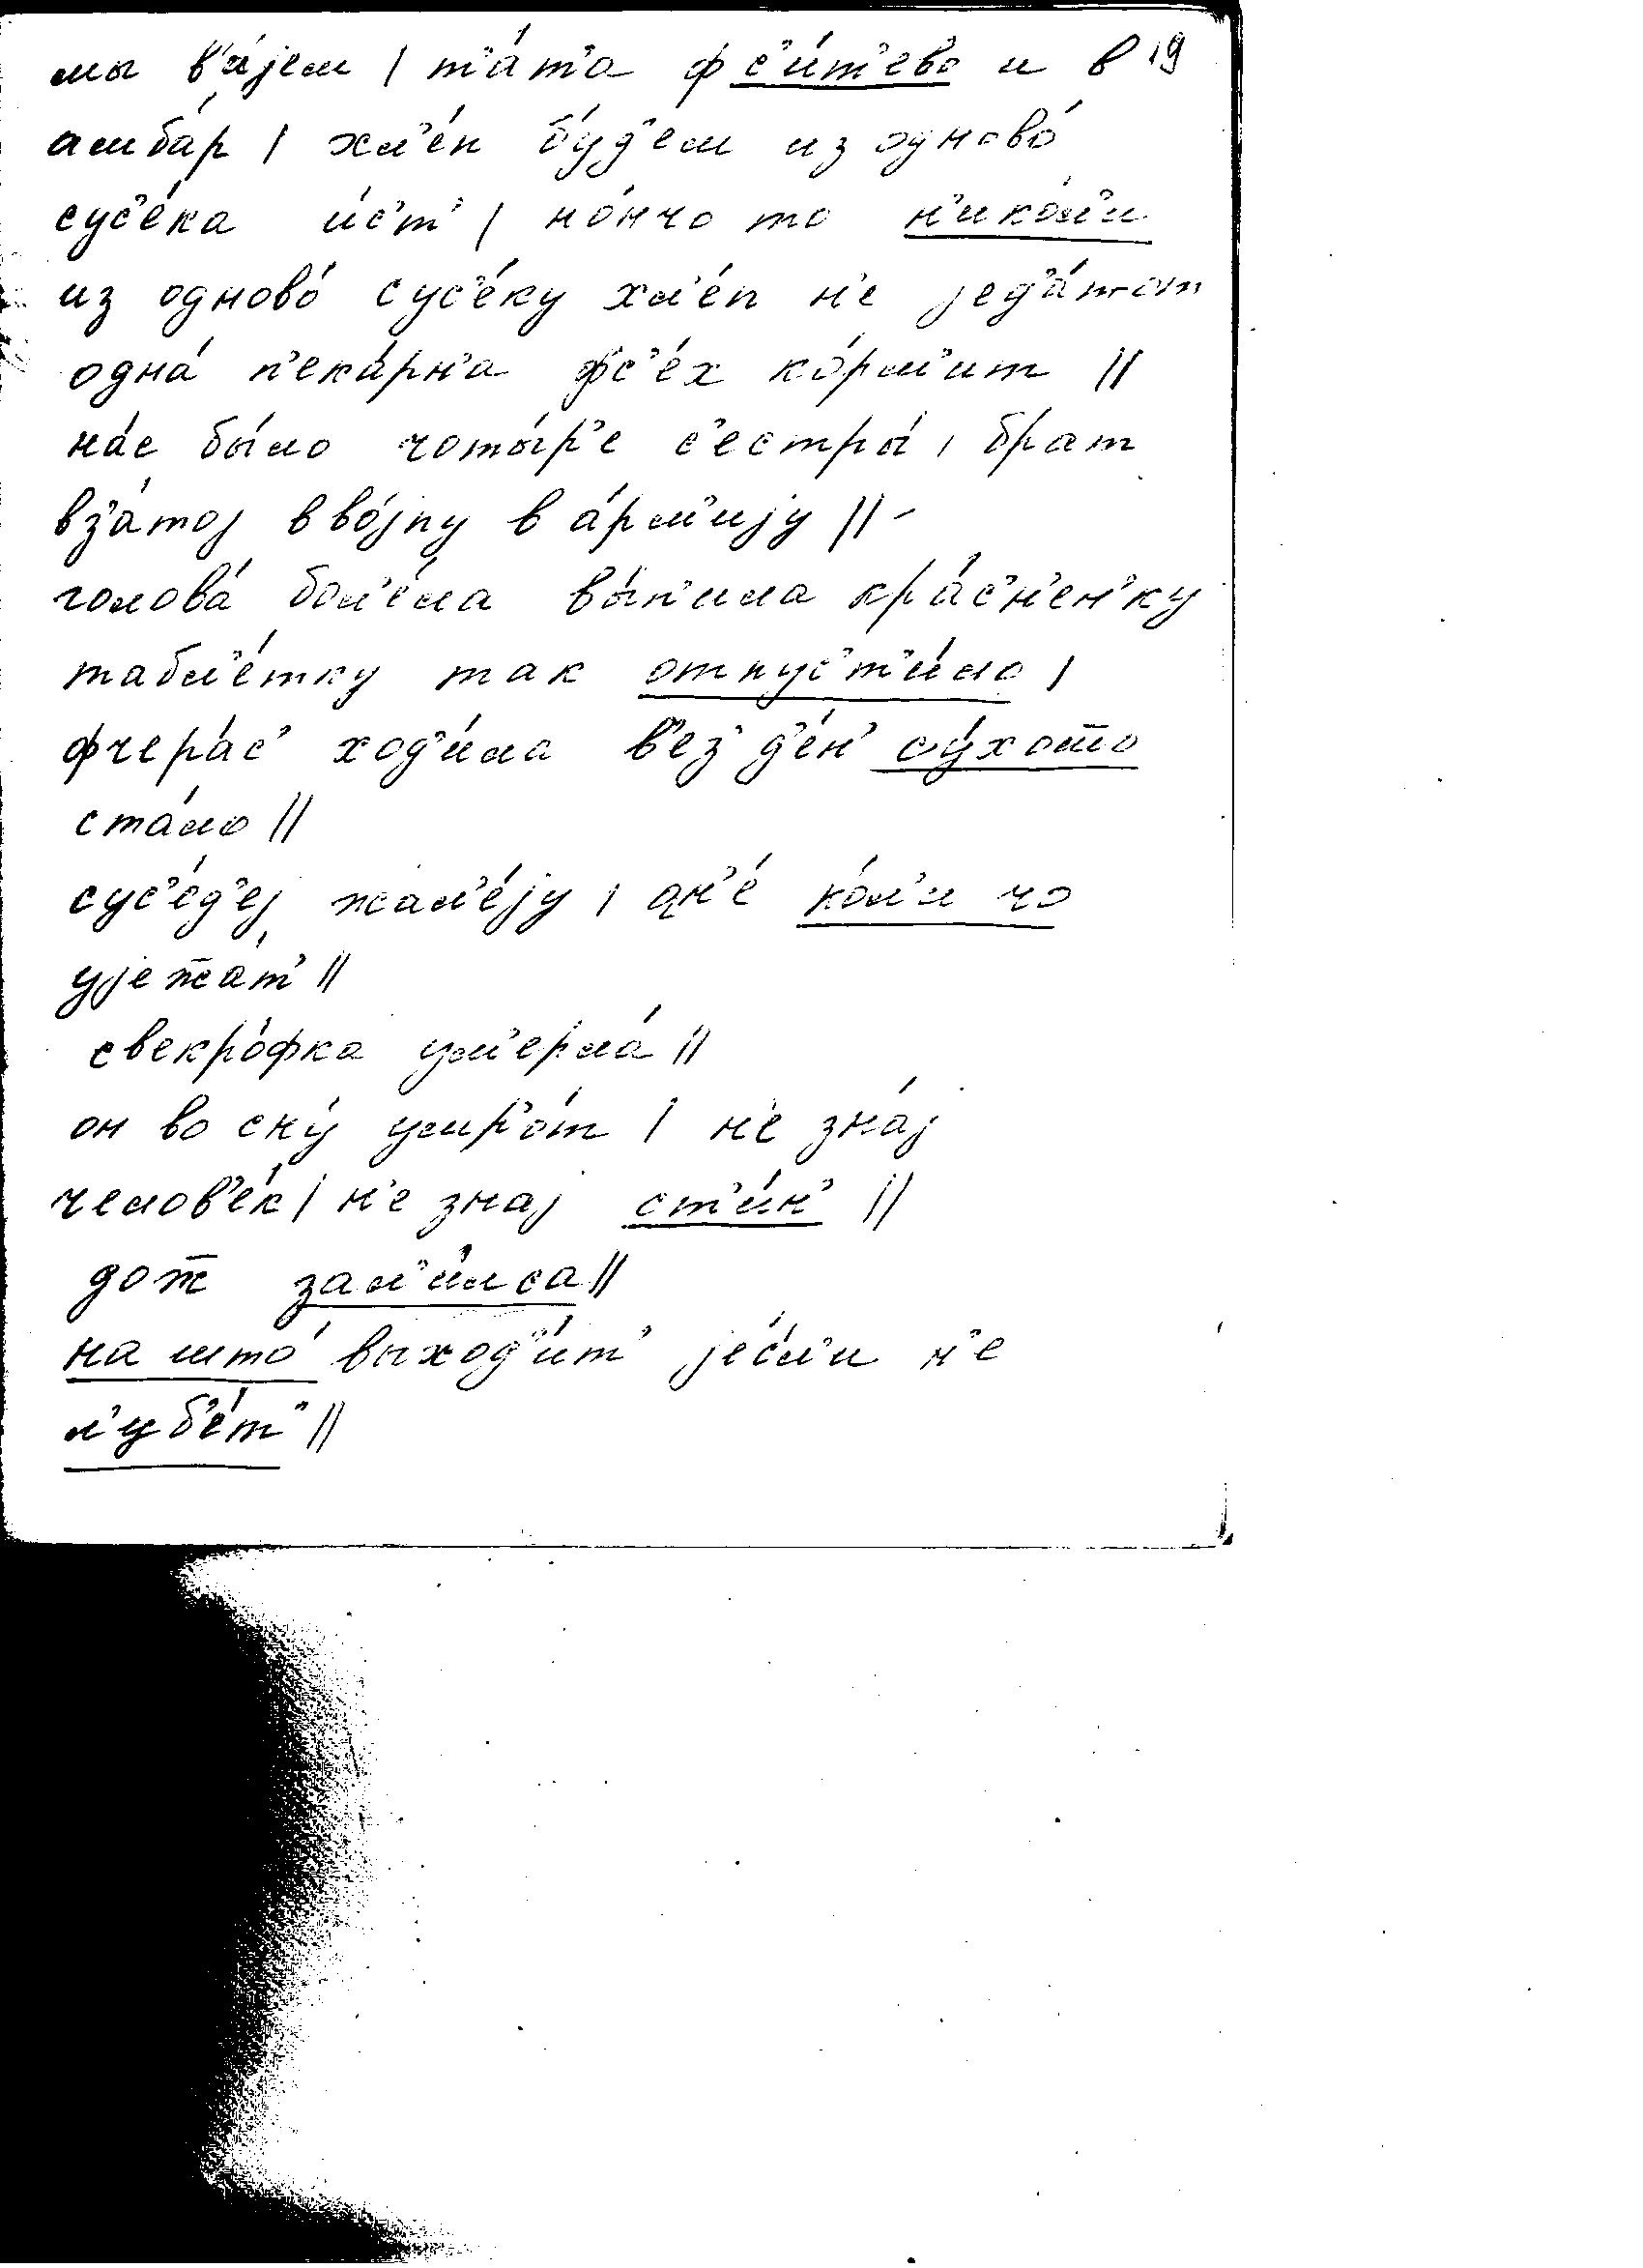 мы в'а́јем / т'а́т'а ф с'и́т'ево и в 19
амба́р / хл'е́п бу́д'ем из одново́
сус'е́ка и́с'т' / но́нчо то н'ико́л'и
из одново́ сус'е́ку хл'е́п н'е јед'а́т
одна́ п'ека́рн'а фс'е́х ко́рм'ит //
на́с бы́ло чоты́р'е с'естры́ / брат
вз'а́тој в во́јну в а́рм'ију //
голова́ бол'е́ла вы́п'ила кра́с'н'ен'ку
табл'е́тку так отпус'т'и́ло /
фчера́с' ход'и́ла в'ез' д'е́н' су́хото
ста́ло //
сус'е́д'еј жал'е́ју / он'е́ ко́л'и чо
ује̄жа́т' //
свекро́фка ум'ерла́ //
он во сну́ умр'о́т / н'е зна́ј
челов'е́к / н'е знај ст'и́н' //
дож зал'и́лса //
на што́ выход'и́т' је́сл'и н'е
л'уб'е́т' //